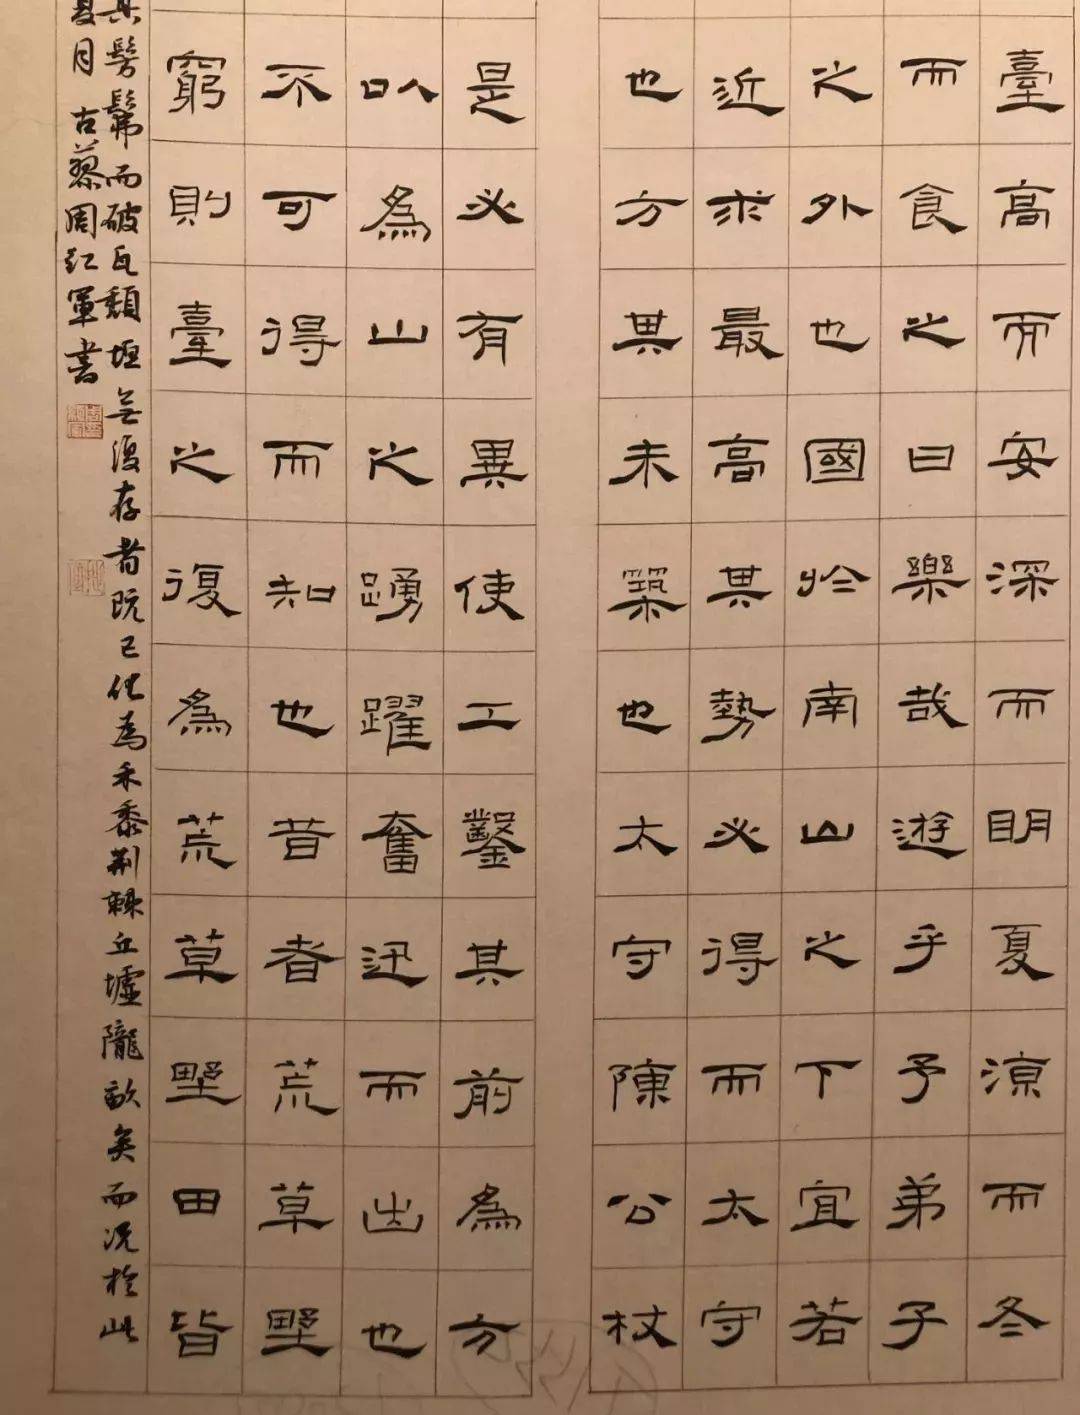 臺高而安深而明夏涼而冬
而食之曰樂哉遊乎予弟子
之外也國於南山之下宜若
近求最高其勢必得而太守
也方其未築也太守陳公杖
是必有異使工鑿其前為方
以為山之踴躍奮迅而出也
不可得而知也昔者荒草野
窮則臺之復為荒草野田皆
其髣髴而破瓦頹垣無復存者既已化為禾黍荊棘丘墟隴畝矣而況於此
夏月古蔡周紅軍書